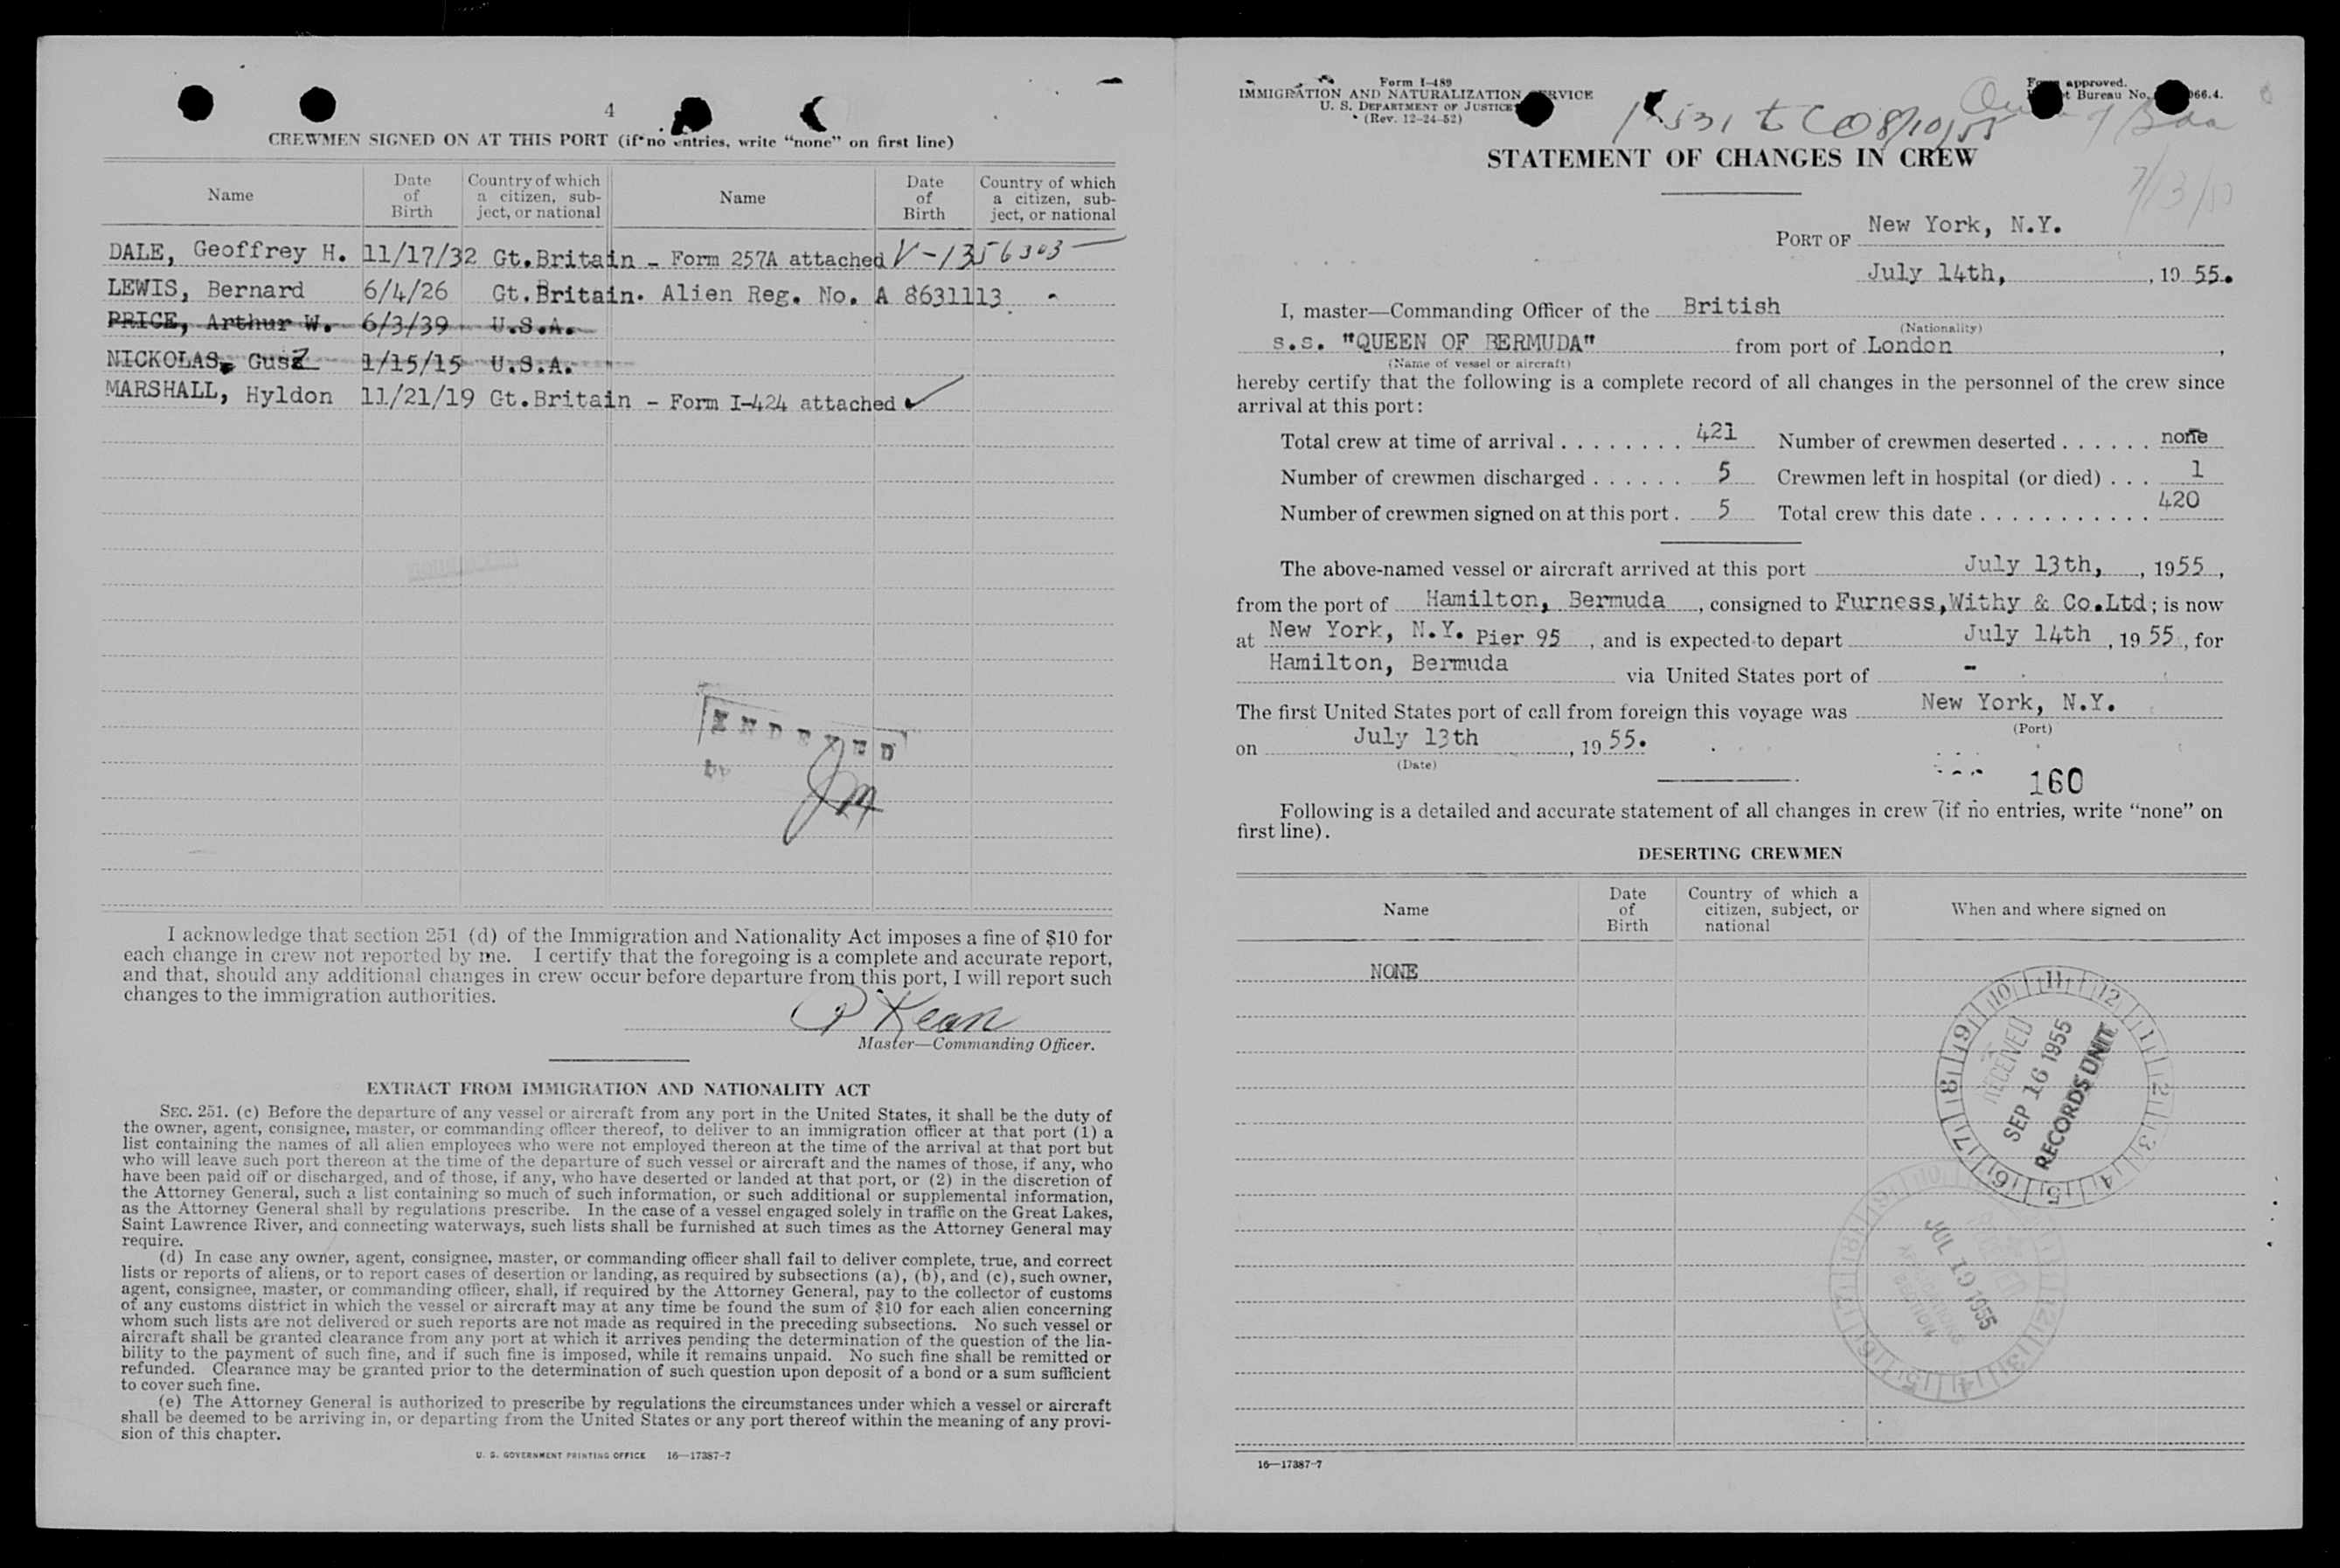 4
CREWMEN SIGNED ON AT THIS PORT (if no entries, write "none" on first line)
Name
Date of Birth
Country of which a citizen, subject, or national
Name
Date of Birth
Country of which a citizen, subject, or national
DALE, Geoffrey H. 11/17/32 Gt.Britain - Form 257A attached V-1356303
LEWIS, Bernard 6/4/26 Gt.Britain. Alien Reg. No. A 8631113
PRICE, Arthur W. 6/3/39 U.S.A.
NICKOLAS, Gus 1/15/15 U.S.A.
MARSHALL, Hyldon 11/21/19 Gt.Britain - Form I-424 attached ✓
INDEXED
by
I acknowledge that section 251 (d) of the Immigration and Nationality Act imposes a fine of $10 for
each change in crew not reported by me. I certify that the foregoing is a complete and accurate report,
and that, should any additional changes in crew occur before departure from this port, I will report such
changes to the immigration authorities.
P Kean
Master—Commanding Officer.
EXTRACT FROM IMMIGRATION AND NATIONALITY ACT
SEC. 251. (c) Before the departure of any vessel or aircraft from any port in the United States, it shall be the duty of
the owner, agent, consignee, master, or commanding officer thereof, to deliver to an immigration officer at that port (1) a
list containing the names of all alien employees who were not employed thereon at the time of the arrival at that port but
who will leave such port thereon at the time of the departure of such vessel or aircraft and the names of those, if any, who
have been paid off or discharged, and of those, if any, who have deserted or landed at that port, or (2) in the discretion of
the Attorney General, such a list containing so much of such information, or such additional or supplemental information,
as the Attorney General shall by regulations prescribe. In the case of a vessel engaged solely in traffic on the Great Lakes,
Saint Lawrence River, and connecting waterways, such lists shall be furnished at such times as the Attorney General may
require.
(d) In case any owner, agent, consignee, master, or commanding officer shall fail to deliver complete, true, and correct
lists or reports of aliens, or to report cases of desertion or landing, as required by subsections (a), (b), and (c), such owner,
agent, consignee, master, or commanding officer, shall, if required by the Attorney General, pay to the collector of customs
of any customs district in which the vessel or aircraft may at any time be found the sum of $10 for each alien concerning
whom such lists are not delivered or such reports are not made as required in the preceding subsections. No such vessel or
aircraft shall be granted clearance from any port at which it arrives pending the determination of the question of the lia-
bility to the payment of such fine, and if such fine is imposed, while it remains unpaid. No such fine shall be remitted or
refunded. Clearance may be granted prior to the determination of such question upon deposit of a bond or a sum sufficient
to cover such fine.
(e) The Attorney General is authorized to prescribe by regulations the circumstances under which a vessel or aircraft
shall be deemed to be arriving in, or departing from the United States or any port thereof within the meaning of any provi-
sion of this chapter.
U. S. GOVERNMENT PRINTING OFFICE 16—17387-7
Form I-489
IMMIGRATION AND NATURALIZATION SERVICE
U. S. DEPARTMENT OF JUSTICE
(Rev. 12-24-52)
approved.
Bureau No. 066.4.
8/10/55
7/13/55
STATEMENT OF CHANGES IN CREW
PORT OF New York, N.Y.
July 14th, , 19 55.
I, master—Commanding Officer of the British
(Nationality)
s.s. "QUEEN OF BERMUDA" from port of London ,
(Name of vessel or aircraft)
hereby certify that the following is a complete record of all changes in the personnel of the crew since
arrival at this port:
Total crew at time of arrival . . . . . . . . 421 Number of crewmen deserted . . . . . . none
Number of crewmen discharged . . . . . . 5 Crewmen left in hospital (or died) . . . 1
Number of crewmen signed on at this port . 5 Total crew this date . . . . . . . . . . . . 420
The above-named vessel or aircraft arrived at this port July 13th, , 1955 ,
from the port of Hamilton, Bermuda , consigned to Furness,Withy & Co.Ltd ; is now
at New York, N.Y. Pier 95 , and is expected to depart July 14th , 19 55 , for
Hamilton, Bermuda via United States port of -
The first United States port of call from foreign this voyage was New York, N.Y.
(Port)
on July 13th , 19 55.
(Date)
160
Following is a detailed and accurate statement of all changes in crew (if no entries, write "none" on
first line).
DESERTING CREWMEN
Name
Date of Birth
Country of which a citizen, subject, or national
When and where signed on
NONE
RECEIVED
SEP 16 1955
RECORDS UNIT
JUL 19 1955
16—17387-7